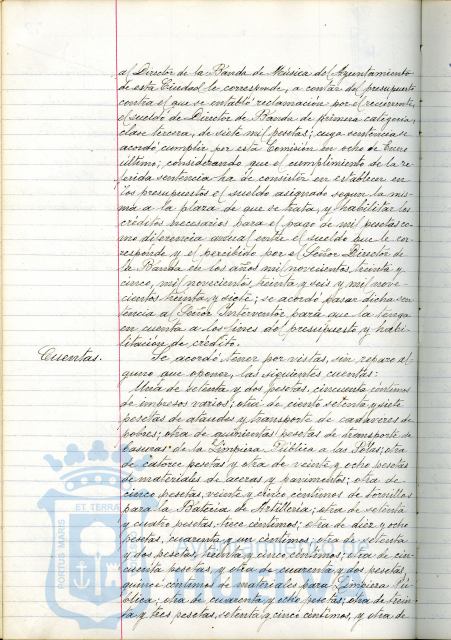 al Director de la Banda de Música del Ayuntamiento
de esta Ciudad le corresponde, a contar del presupuesto
contra el que se entabló reclamación por el recurrente,
el sueldo de Director de Banda de primera categoría,
clase tercera, de siete mil pesetas; cuya sentencia se
acordó cumplir por esta Comisión en ocho de Enero
último; considerando que el cumplimiento de la re-
ferida sentencia ha de consistir en establecer en
los presupuestos el sueldo asignado segun la mis-
ma a la plaza de que se trata, y habilitar los
créditos necesarios para el pago de mil pesetas co-
mo diferencia anual entre el sueldo que le cor-
responde y el percibido por el Señor Director de
la Banda en los años mil novecientos treinta y
cinco, mil novecientos treinta y seis y mil nove-
cientos treinta y siete; se acordó pasar dicha sen-
tencia al Señor Interventor para que la tenga
en cuenta a los fines del presupuesto y habi-
litación de crédito.
Cuentas. Se acordó tener por vistas, sin reparo al-
guno que oponer, las siguientes cuentas:
Una de setenta y dos pesetas, cincuenta céntimos
de impresos varios; otra de ciento setenta y siete
pesetas de ataudes y transporte de cadáveres de
pobres; otra de quinientas pesetas de transporte de
basuras de la Limpieza Pública a las ; otra
de catorce pesetas y otra de veinte y ocho pesetas
de materiales de aceras y pavimentos; otra de
cinco pesetas, veinte y cinco céntimos de tornillos
para la Batería de Artillería; otra de setenta
y cuatro pesetas, trece céntimos; otra de diez y ocho
pesetas, cuarenta y un céntimos, otra de setenta
y dos pesetas, treinta y cinco céntimos; otra de cin-
cuenta pesetas, y otra de cuarenta y dos pesetas,
quince céntimos de materiales para Limpieza Pú-
blica; otra de cuarenta y ocho pesetas; otra de trein-
ta y tres pesetas, setenta y cinco céntimos, y otra de
PORTUS MARIS ET TERRA